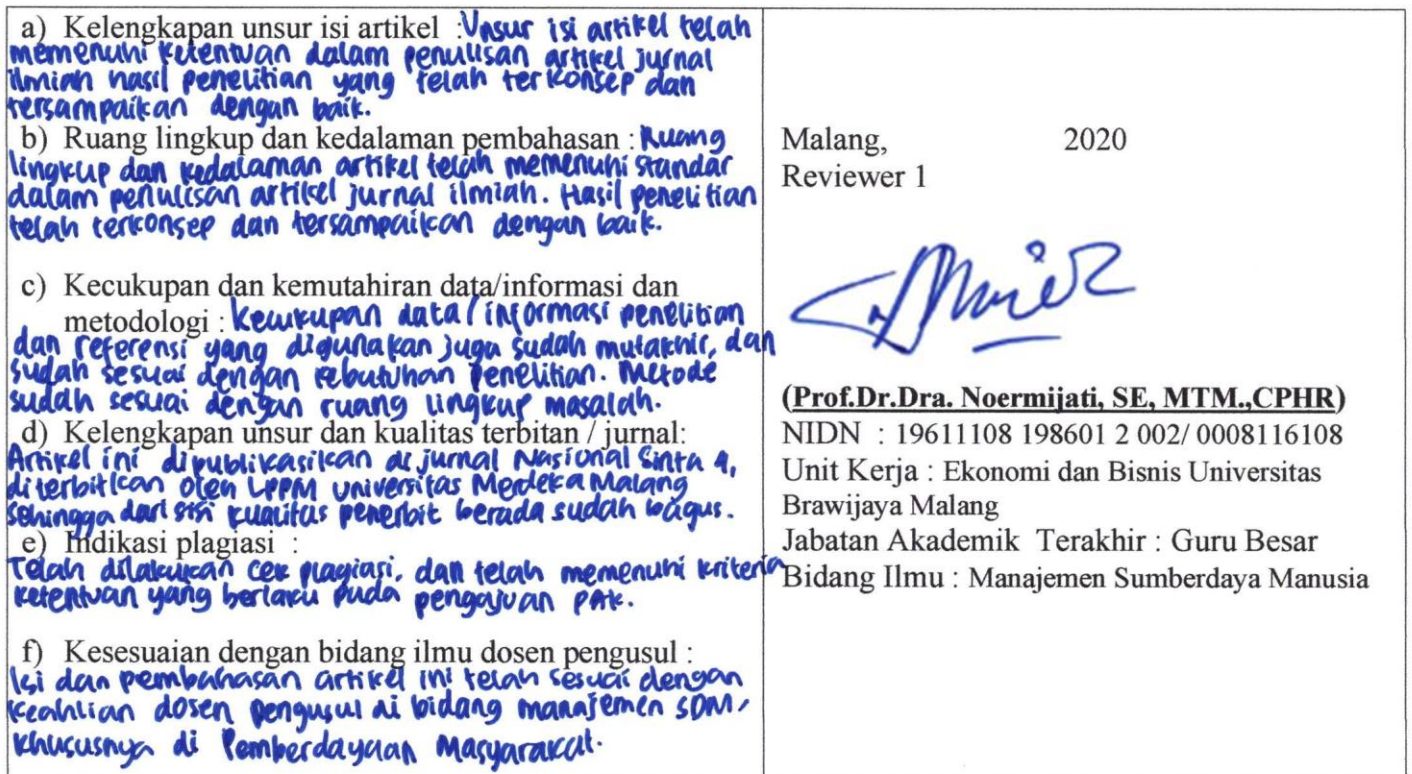 a) Kelengkapan unsur isi artikel : Unsur isi artikel telah
memenuhi ketentuan dalam penulisan artikel jurnal
ilmiah hasil penelitian yang telah terkonsep dan
tersampaikan dengan baik.
b) Ruang lingkup dan kedalaman pembahasan : Ruang
lingkup dan kedalaman artikel telah memenuhi standar
dalam penulisan artikel jurnal ilmiah. Hasil penelitian
telah terkonsep dan tersampaikan dengan baik.
c) Kecukupan dan kemutahiran data/informasi dan
metodologi : Kecukupan data/informasi penelitian
dan referensi yang digunakan juga sudah mutakhir, dan
sudah sesuai dengan kebutuhan penelitian. Metode
sudah sesuai dengan ruang lingkup masalah.
d) Kelengkapan unsur dan kualitas terbitan / jurnal:
Artikel ini dipublikasikan di jurnal Nasional Sinta 4,
diterbitkan oleh LPPM Universitas Merdeka Malang
sehingga dari sisi kualitas penerbit berada sudah bagus.
e) Indikasi plagiasi :
Telah dilakukan cek plagiasi, dan telah memenuhi kriteria
ketentuan yang berlaku pada pengajuan PAK.
f) Kesesuaian dengan bidang ilmu dosen pengusul :
Isi dan pembahasan artikel ini telah sesuai dengan
keahlian dosen pengusul di bidang manajemen SDM,
khususnya di Pemberdayaan Masyarakat.
Malang, 2020
Reviewer 1
(Prof.Dr.Dra. Noermijati, SE, MTM.,CPHR)
NIDN : 19611108 198601 2 002/ 0008116108
Unit Kerja : Ekonomi dan Bisnis Universitas
Brawijaya Malang
Jabatan Akademik Terakhir : Guru Besar
Bidang Ilmu : Manajemen Sumberdaya Manusia